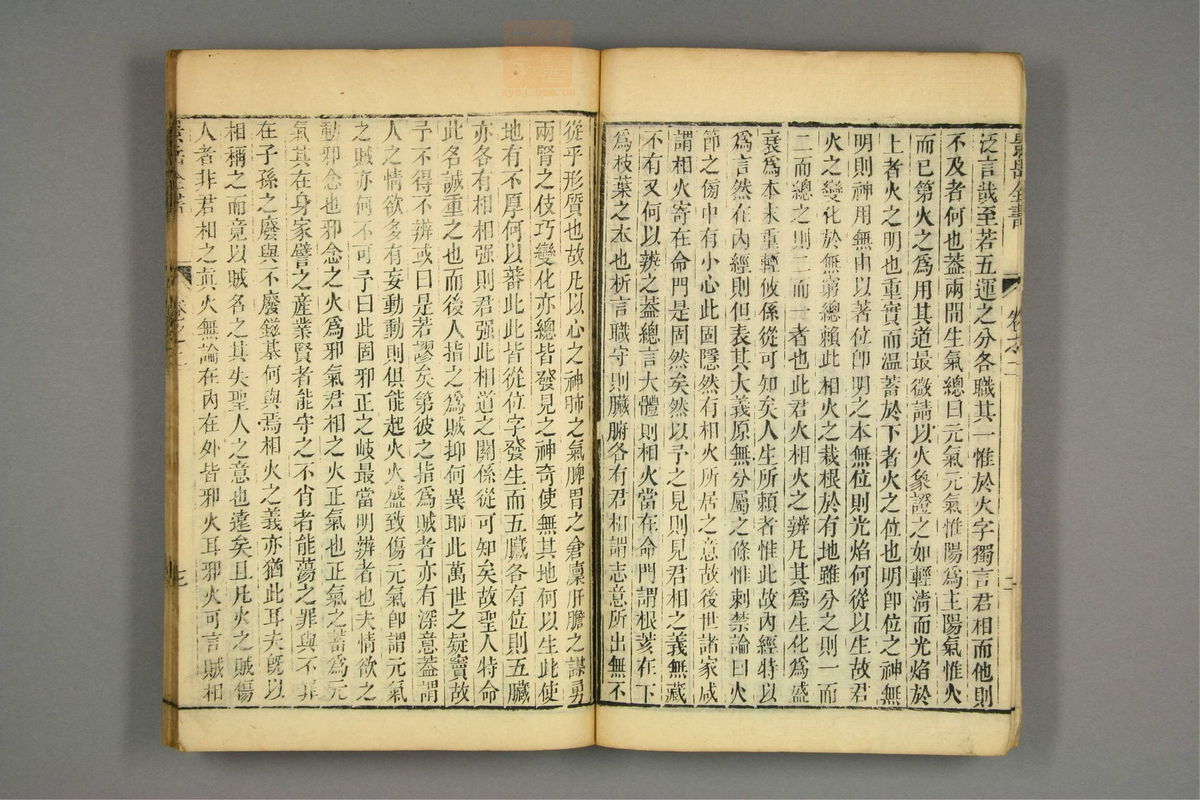 景岳全書
卷之二
泛言哉至若五運之分各職其一惟於火字獨言君相而他則
不及者何也葢兩間生氣總曰元氣元氣惟陽為主陽氣惟火
而已第火之為用其道最微請以火象證之如輕清而光焰於
上者火之明也重實而温蓄於下者火之位也明卽位之神無
明則神用無由以著位卽明之本無位則光焰何從以生故君
火之變化於無窮總賴此相火之栽根於有地雖分之則一而
二而總之則二而一者也此君火相火之辨凡其為生化為盛
衰為本末重輕攸係從可知矣人生所賴者惟此故內經特以
為言然在內經則但表其大義原無分屬之條惟刺禁論曰火
節之傍中有小心此固隱然有相火所居之意故後世諸家咸
謂相火寄在命門是固然矣然以予之見則見君相之義無藏
不有又何以辨之葢總言大體則相火當在命門謂根荄在下
為枝葉之本也析言職守則臟腑各有君相謂志意所出無不
從乎形質也故凡以心之神肺之氣脾胃之倉廩肝膽之謀勇
兩腎之伎巧變化亦總皆發見之神奇使無其地何以生此使
地有不厚何以蕃此此皆從位字發生而五臟各有位則五臟
亦各有相相强則君强此相道之關係從可知矣故聖人特命
此名誠重之也而後人指之為賊抑何異耶此萬世之疑竇故
予不得不辨或曰是若謬矣第彼之指為賊者亦有深意葢謂
人之情欲多有妄動動則俱能起火火盛致傷元氣卽謂元氣
之賊亦何不可予曰此固邪正之岐最當明辨者也夫情欲之
動邪念也邪念之火為邪氣君相之火正氣也正氣之蓄為元
氣其在身家譬之產業賢者能守之不肖者能蕩之罪與不罪
在子孫之廢與不廢鎡基何與焉相火之義亦猶此耳夫旣以
相稱之而竟以賊名之其失聖人之意也遠矣且凡火之賊傷
人者非君相之真火無論在內在外皆邪火耳邪火可言賊相
景岳全書
卷之二
三